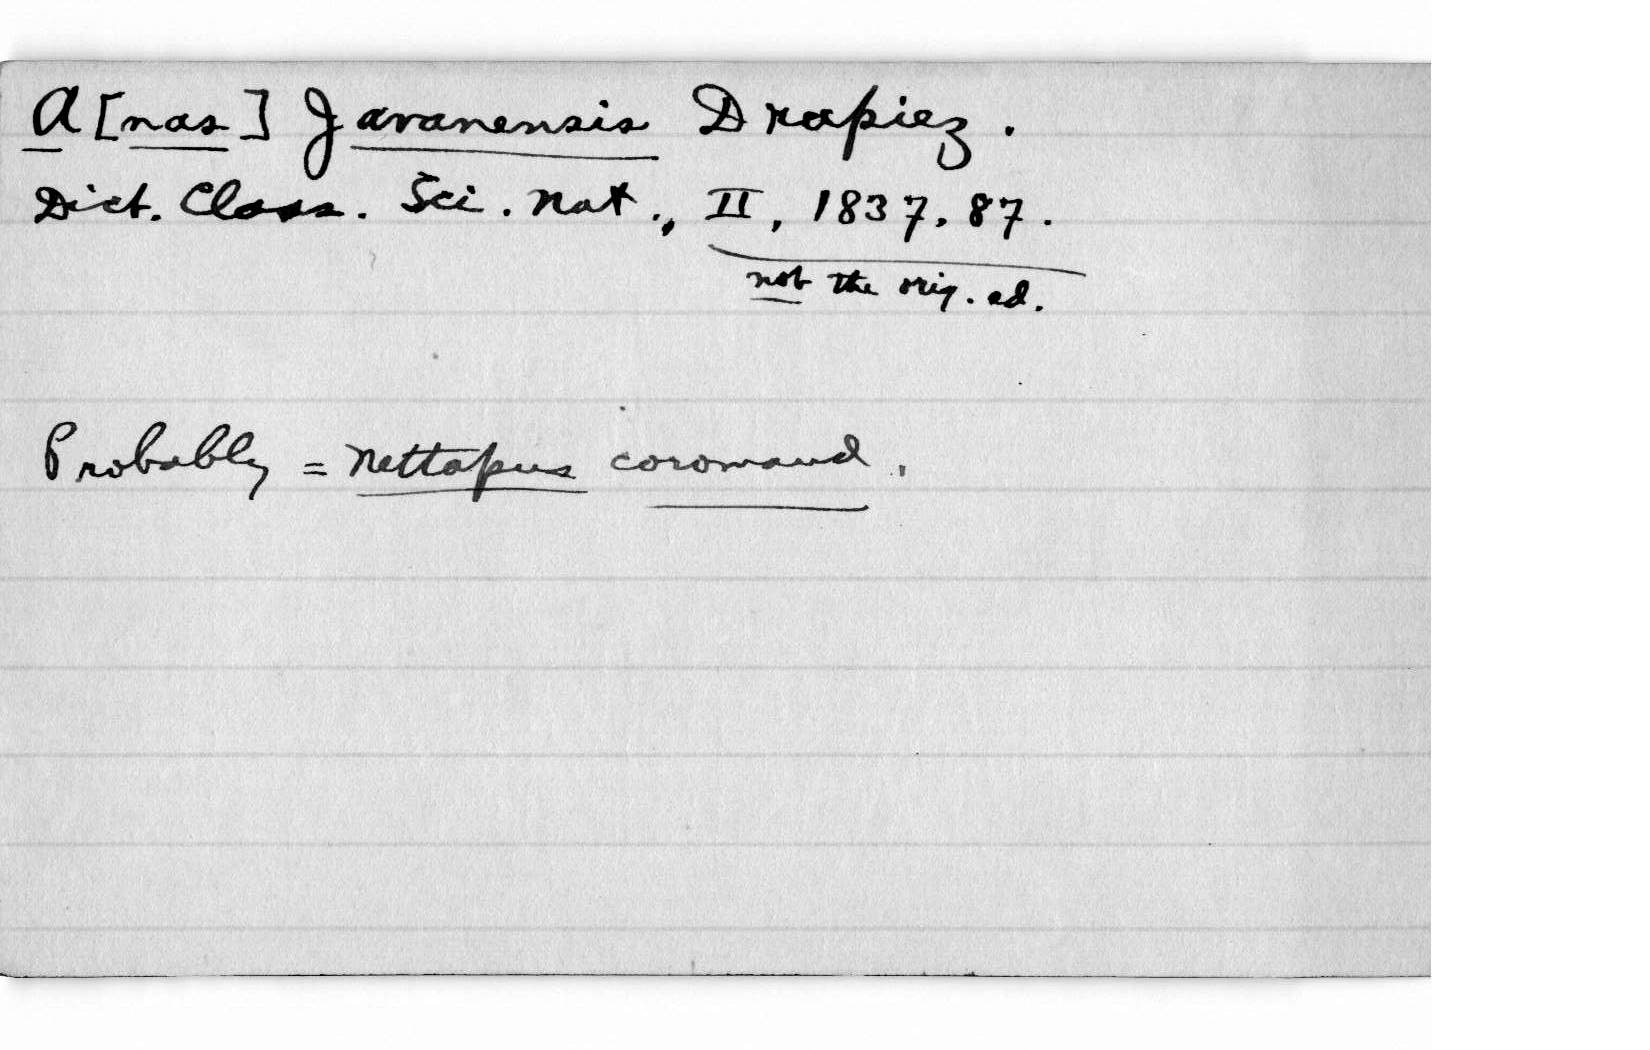 A[nas] Javanensis Drapiez.
Dict. Class. Sci. Nat., II, 1837, 87.
not the orig. ed.
Probably = Nettapus coromand.